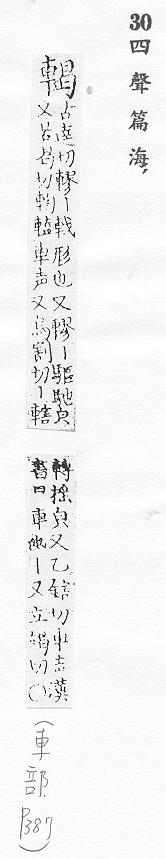 30 四聲篇海,
轕
古達切轇丨戟形也又轇丨驅馳皃
又苦曷切輵轄車声又烏割切丨轄
轉搖皃又乙鎋切車声漢
書曰車丨又立竭切〇
(車部
P387)